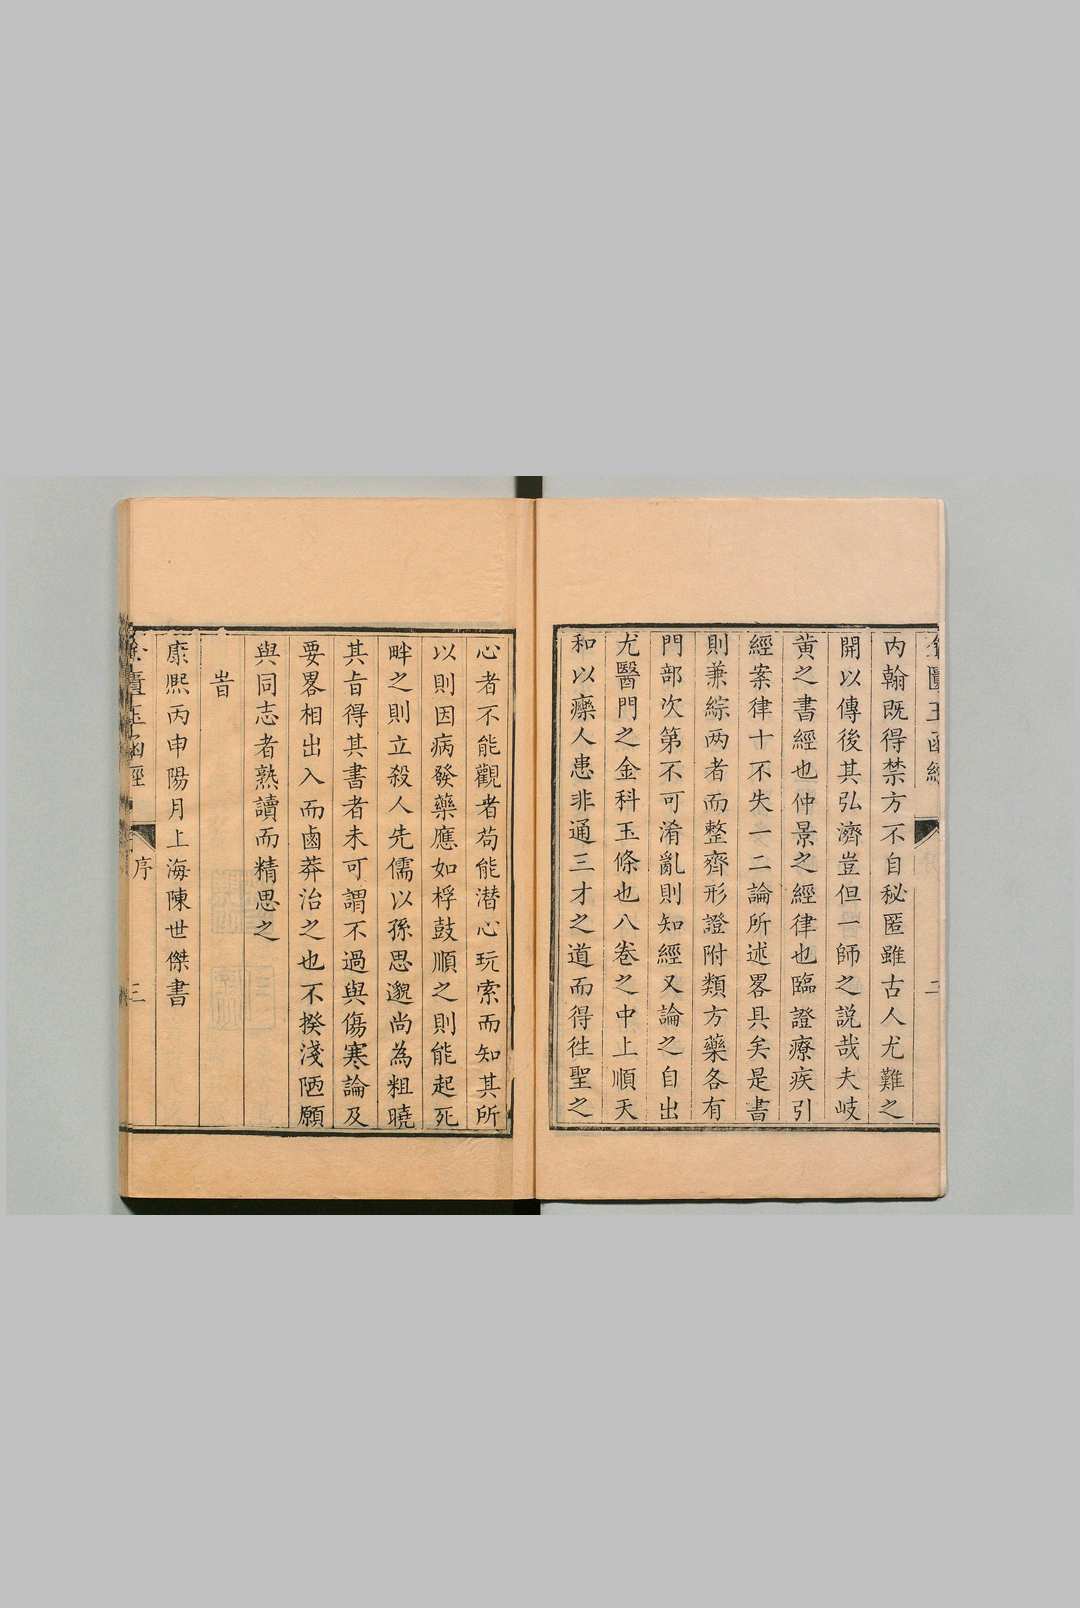 金匱玉函經
二
內翰既得禁方不自秘匿雖古人尤難之
開以傳後其弘濟豈但一師之説哉夫岐
黃之書經也仲景之經律也臨證療疾引
經案律十不失一二論所述畧具矣是書
則兼綜两者而整齊形證附類方藥各有
門部次第不可淆亂則知經又論之自出
尤醫門之金科玉條也八卷之中上順天
和以療人患非通三才之道而得徃聖之
心者不能觀者苟能潜心玩索而知其所
以則因病發藥應如桴鼓順之則能起死
畔之則立殺人先儒以孫思邈尚為粗曉
其㫖得其書者未可謂不過與傷寒論及
要畧相出入而鹵莽治之也不揆淺陋願
與同志者熟讀而精思之
旹
康熙丙申陽月上海陳世傑書
金匱玉函經
序
三